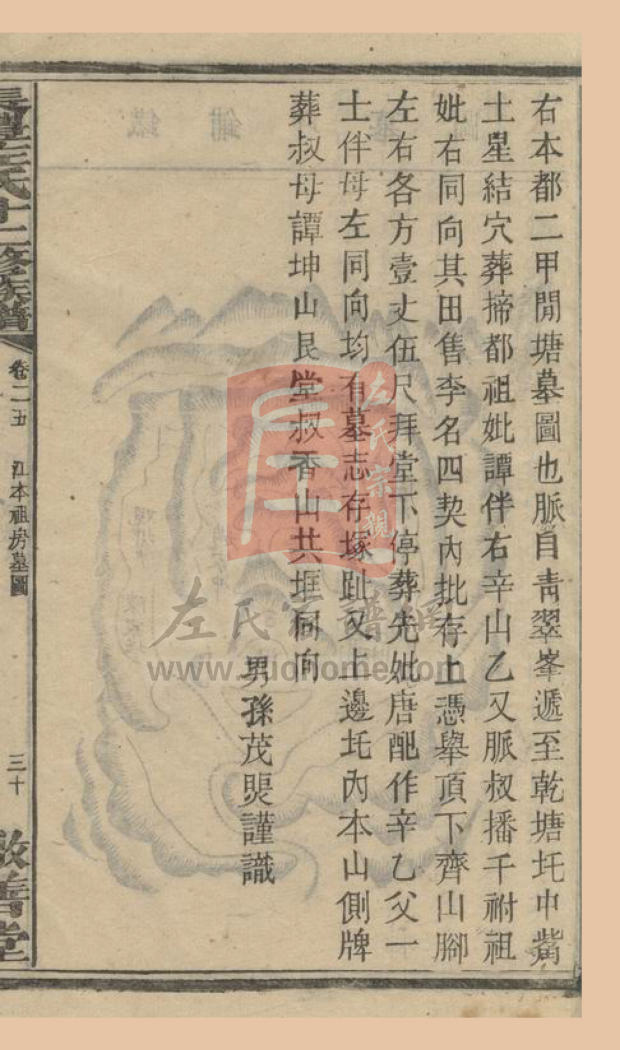 右本都二甲閒塘墓圖也脈自青翠峯遞至乾塘圫中觜
土星結穴葬揥都祖妣譚伴右辛山乙又脈叔播千祔祖
妣右同向其田售李名四契內批存上憑舉頂下齊山腳
左右各方壹丈伍尺拜堂下停葬先妣唐配作辛乙父一
士伴母左同向均有墓志存塚趾又上邊圫內本山側牌
葬叔母譚坤山艮堂叔香山共堆同向
男孫茂煚謹識
長灃左氏十二修族譜
卷二五
江本祖房墓圖
三十
敬善堂
左氏宗親
左氏家譜網
www.zuohome.com